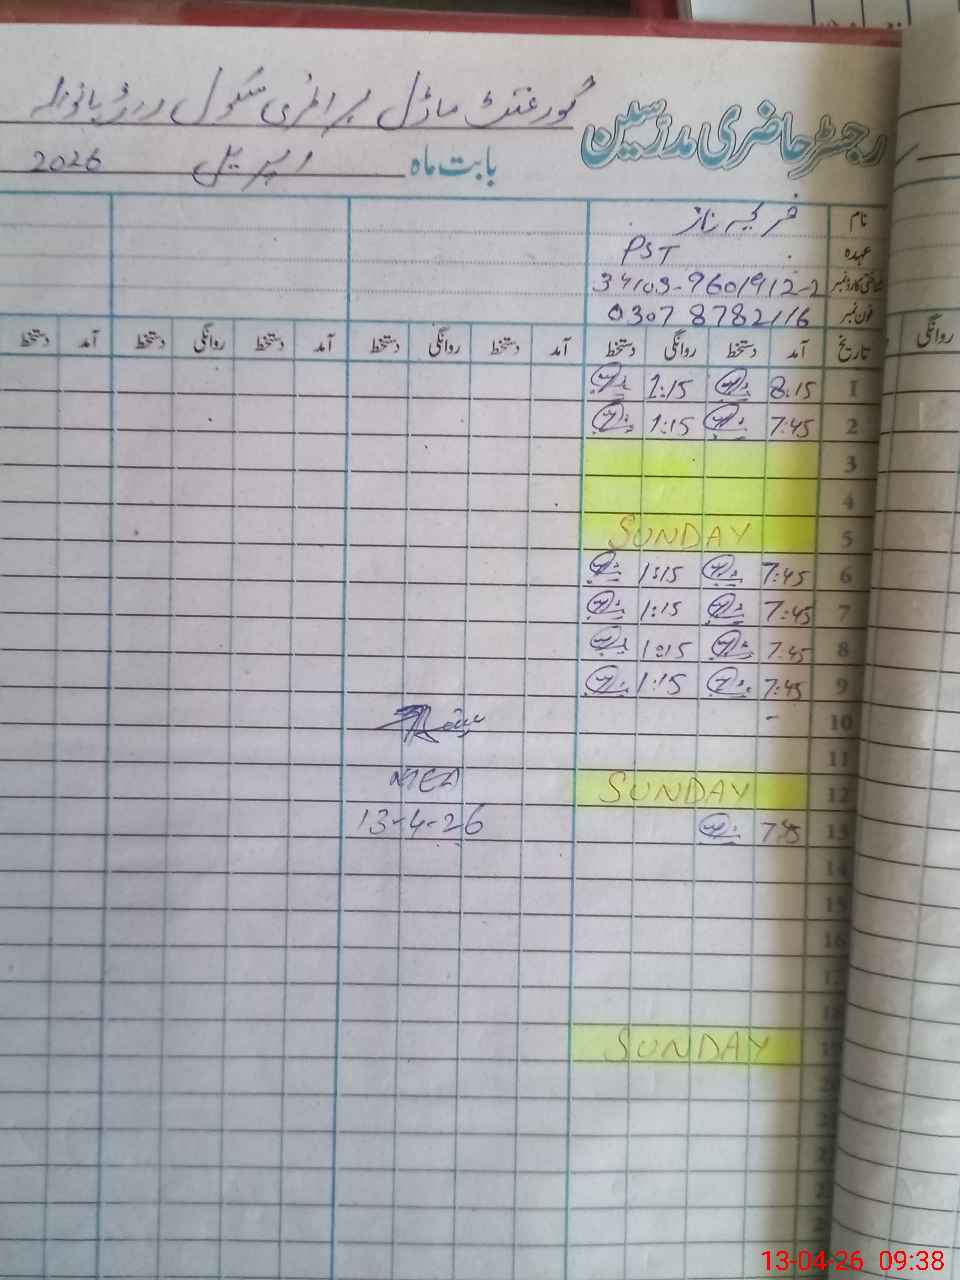 رجسٹر حاضری مدرسین گورنمنٹ ماڈل پرائمری سکول
بابت ماہ اپریل 2026
نام ناز
عہدہ PST
شناختی کارڈ نمبر 34103-9601912-2
فون نمبر 0307 8782116
تاریخ آمد دستخط روانگی دستخط آمد دستخط روانگی دستخط آمد دستخط روانگی دستخط آمد دستخط
روانگی
1 8:15 1:15
2 7:45 1:15
3
4
5 SUNDAY
6 7:45 1:15
7 7:45 1:15
8 7:45 1:15
9 7:45 1:15
10 -
11
12 SUNDAY
13 7:45 13-4-26
14
15
16
17
18
19 SUNDAY
13-04-26 09:38